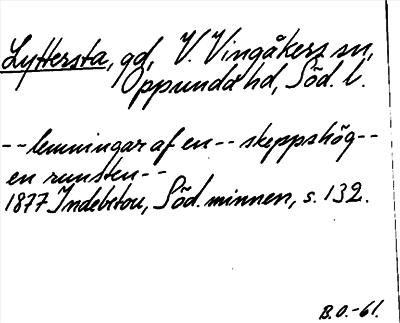 Lyttersta, gd, V. Vingåkers sn,
Oppunda hd, Söd. l.
-- lemningar af en -- skeppshög --
en runsten --
1877 Indebetou, Söd. minnen, s. 132.
B.O.-61.